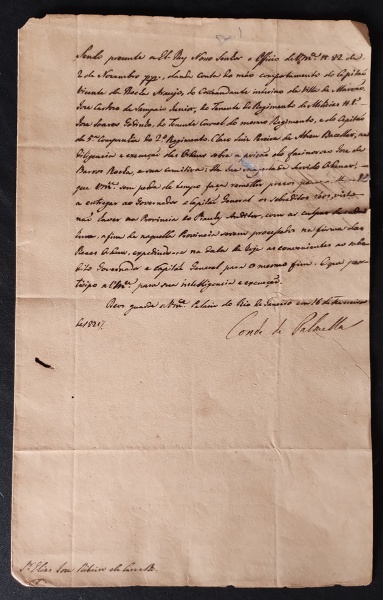 Sendo presente a El-Rey Nosso Senhor o Officio de Vmce. N.º 82 de
2 de Novembro ppº, dando conta do máo comportamento do Capitão
Vicente da Araujo, do Comandante interino da Villa de Marvão
José Cardoso de Sampaio Junior, do Tenente do Regimento de Milicias N.º
José Soares, do Tenente Coronel do mesmo Regimento, e do Capitão
da 5ª Companhia do 2º Regimento. Claro Luis Pereira de Abreu Bacellar, nas
diligencias e execução das Ordens sobre a prizão do facinoroso José de
Barros Rocha, e sua comitiva; He Sua Magestade Servido Ordenar,
que Vmce. sem perda de tempo faça remetter prezos para
a entregar ao Governador e Capitão General os sobreditos réos, visto
não haver na Provincia do Piauhy Auditor, com as culpas de cada
hum, a fim de naquella Provincia serem processados na forma das
Reaes Ordens, expedindo-se na data de hoje as convenientes ao sobre
dito Governador e Capitão General para o mesmo fim. O que par
ticipo a Vmce. para sua intelligencia e execução.
Deos guarde a Vmce. Palacio do Rio de Janeiro em 16 de Fevereiro
de 1821.
Conde de Palmella
Sr. Elias Joze Ribeiro de Carvalho